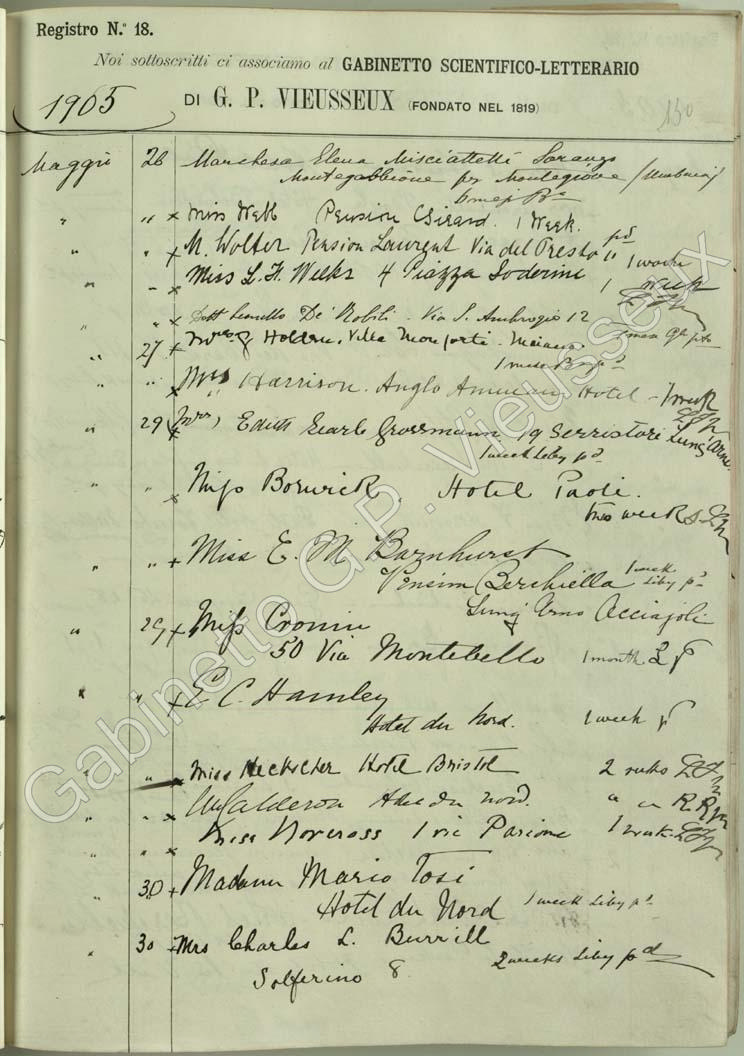 Registro N.° 18.
Noi sottoscritti ci associamo al GABINETTO SCIENTIFICO-LETTERARIO
1905 DI G. P. VIEUSSEUX (FONDATO NEL 1819) 130
Maggio 26 Marchesa Elena Misciattelli
Montegabbione per Montegiove (Umbria)
" " x Miss Webb Pension Girard. 1 Week.
" " x M. Wolter Pension Laurent Via del Presto " 1 week
" " x Miss L. H. Weeks 4 Piazza Soderini 1 week
" " x Dott Leonello De' Nobili - Via S. Ambrogio 12
" 27 x Holden, Villa Monforti - Maiano
" " x Mrs Harrison. Anglo American Hotel - 1 week
" 29 x (Mrs) Edith Searle Grossmann 19 Serristori Lung' Arno.
1 week Liby pd
" " x Miss Borwick, Hotel Paoli.
two weeks
" " + Miss E. M. Barnhurst 1 week
Pension Berchiella Liby pd
Lung' Arno Acciajoli
" 29 x Miss Cronin
50 Via Montebello 1 month
" " x E. C. Hamley
Hotel du Nord. 1 week
" " x Miss Heckscher Hotel Bristol 2 weeks
" " x Calderon du Nord. " "
" " x Miss Norcross 1 via Parione 1 week
" 30 + Madame Mario Tosi
Hotel du Nord 1 week Liby pd
" 30 + Mrs Charles L. Burrill
Solferino 8 2 weeks Liby pd
Gabinetto G.P. Vieusseux